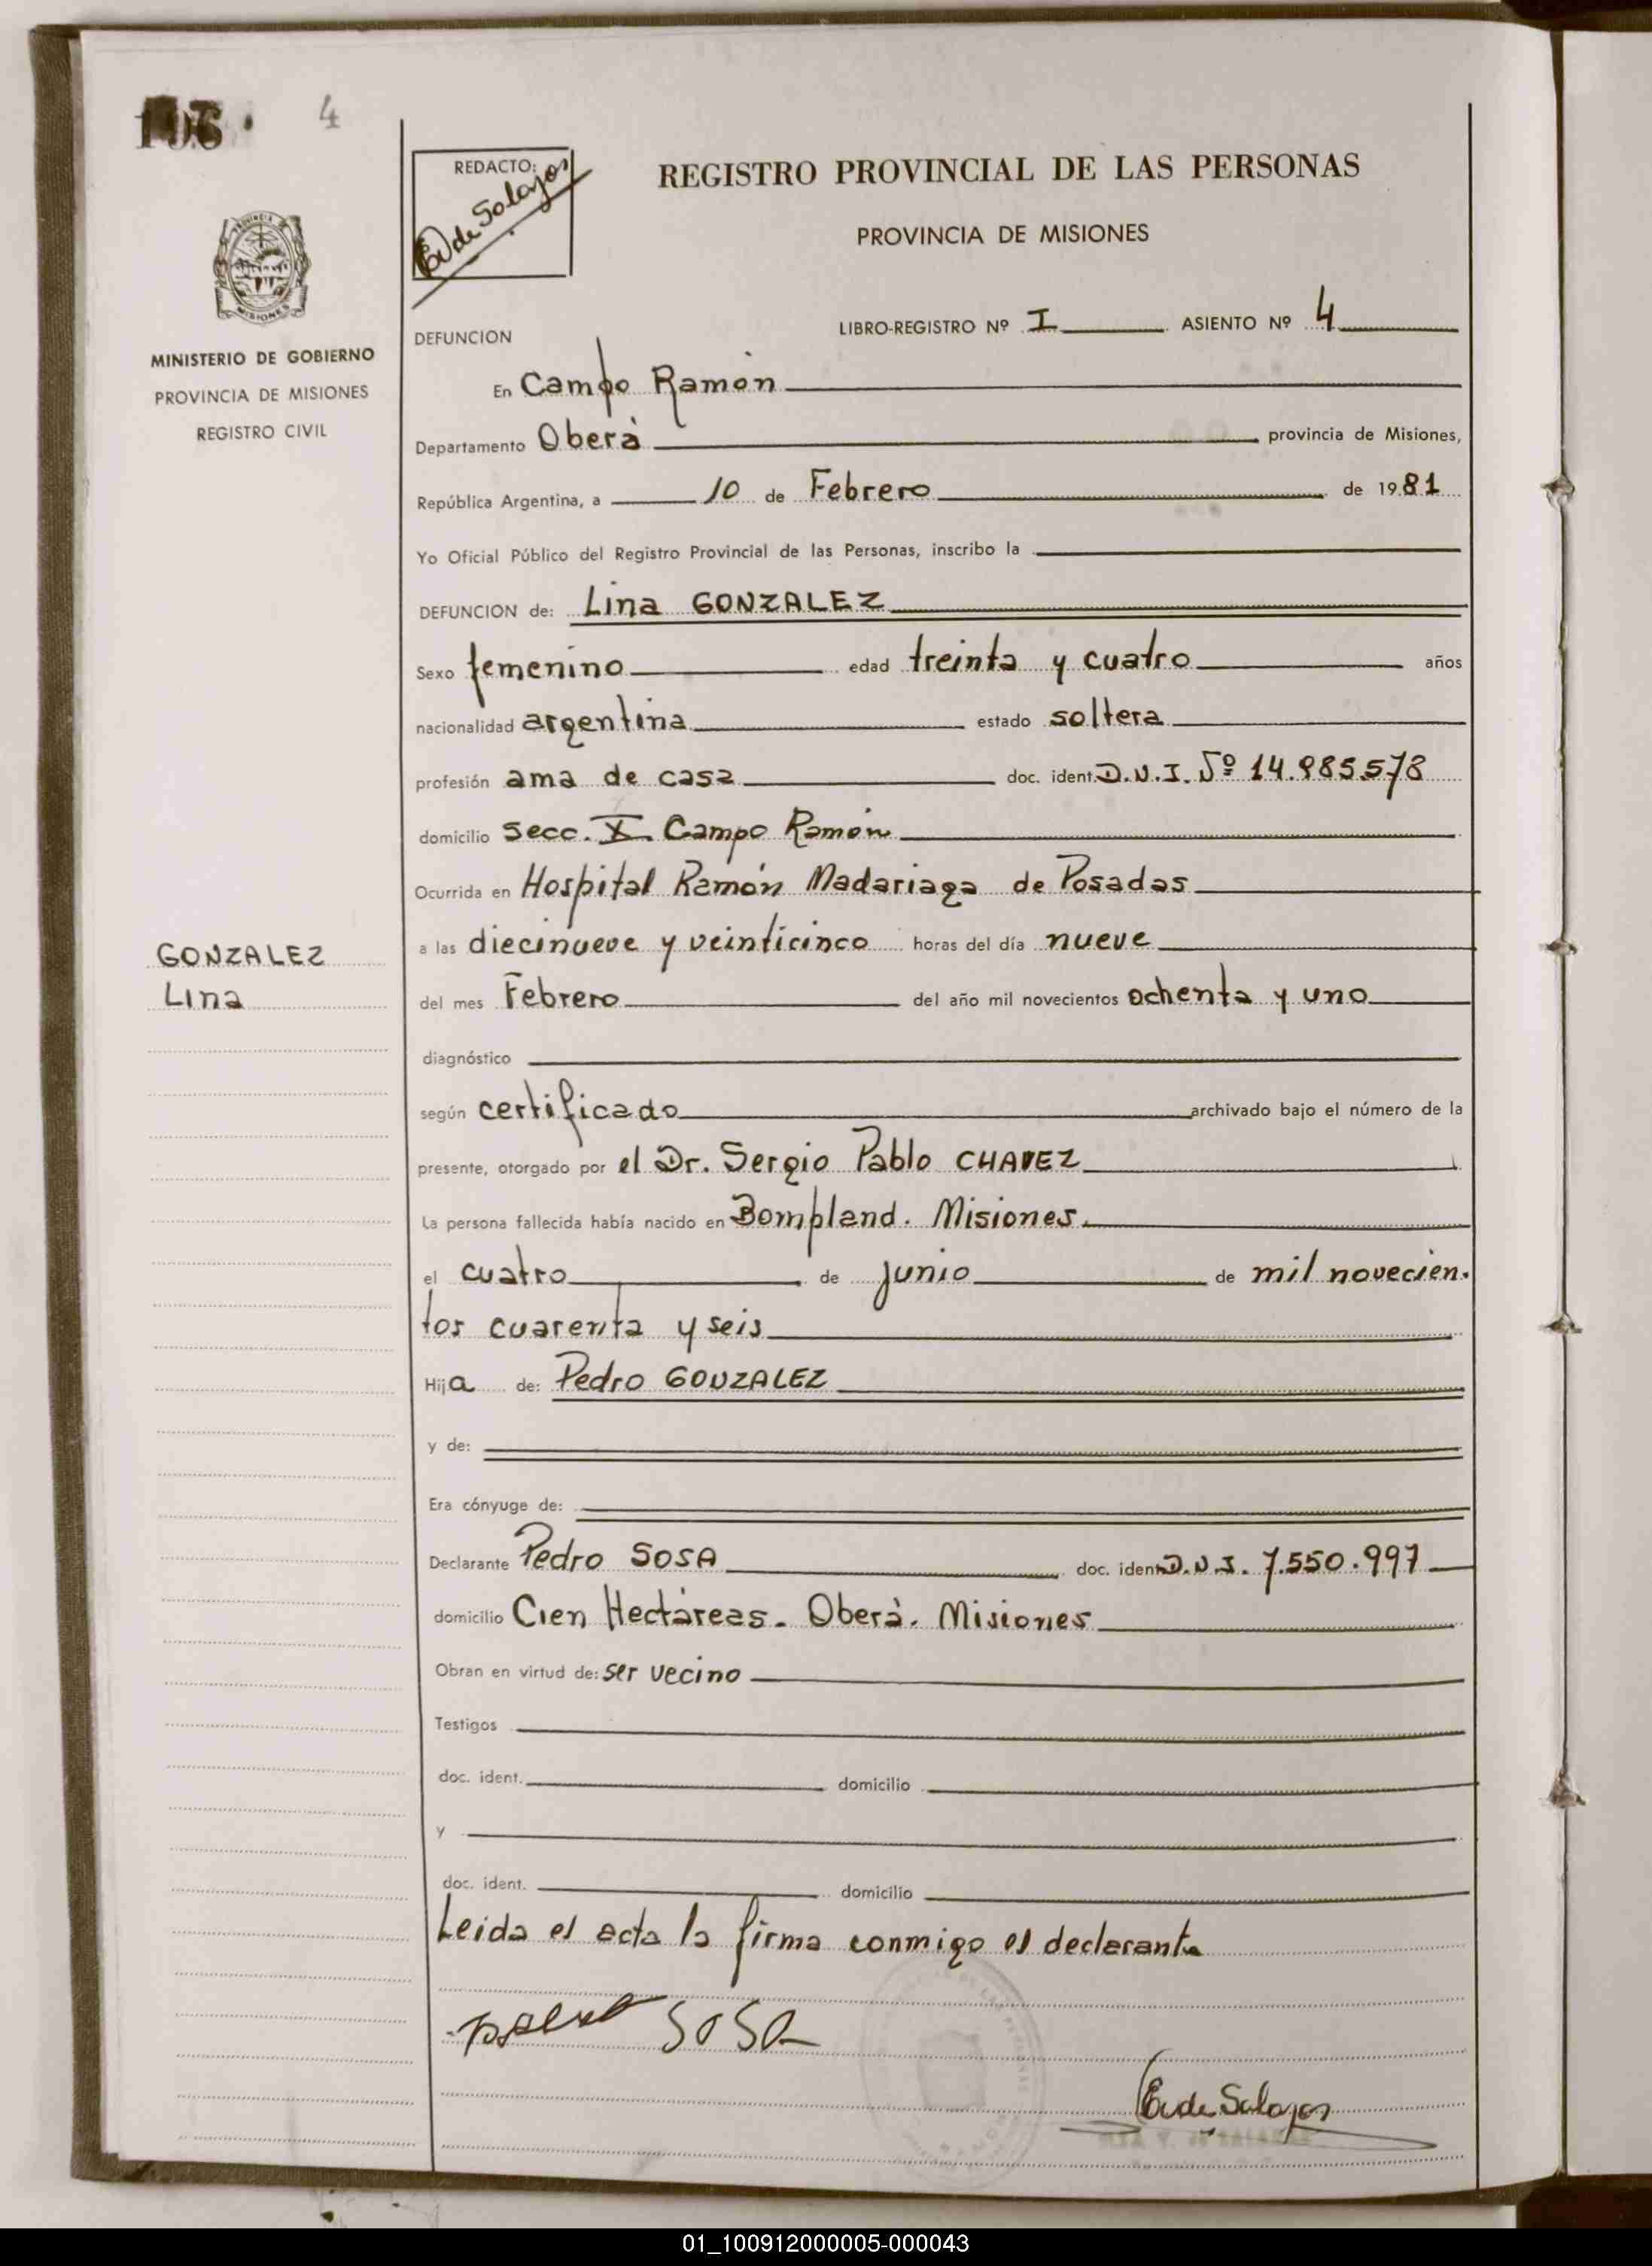 4
REDACTO:
REGISTRO PROVINCIAL DE LAS PERSONAS
PROVINCIA DE MISIONES
MISIONES
MINISTERIO DE GOBIERNO
PROVINCIA DE MISIONES
REGISTRO CIVIL
DEFUNCION
LIBRO-REGISTRO Nº I ASIENTO Nº 4
En Campo Ramón
Departamento Oberà provincia de Misiones,
República Argentina, a 10 de Febrero de 1981
Yo Oficial Público del Registro Provincial de las Personas, inscribo la
DEFUNCION de: Lina GONZALEZ
Sexo femenino edad treinta y cuatro años
nacionalidad argentina estado soltera
profesión ama de casa doc. ident. D.N.I. Nº 14.985.578
domicilio secc. X Campo Ramón
Ocurrida en Hospital Ramón Madariaga de Posadas
GONZALEZ
Lina
a las diecinueve y veinticinco horas del día nueve
del mes Febrero del año mil novecientos ochenta y uno
diagnóstico
según certificado archivado bajo el número de la
presente, otorgado por el Dr. Sergio Pablo CHAVEZ
La persona fallecida había nacido en Bompland. Misiones.
el cuatro de junio de mil novecien.
tos cuarenta y seis
Hija de: Pedro GONZALEZ
y de:
Era cónyuge de:
Declarante Pedro SOSA doc. ident D.N.I. 7.550.997
domicilio Cien Hectàreas. Oberà. Misiones
Obran en virtud de: ser vecino
Testigos
doc. ident. domicilio
y
doc. ident. domicilio
Leida el acta la firma conmigo el declarante
SOSA
01_100912000005-000043